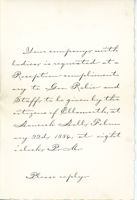 Your company with
ladies is requested at a
Reception compliment-
ary to Gov. Robie and
Staff, to be given by the
citizens of Ellsworth, at
Hancock Hall, Febru-
ary 22d, 1884, at eight
o'clock P. M.
Please reply.